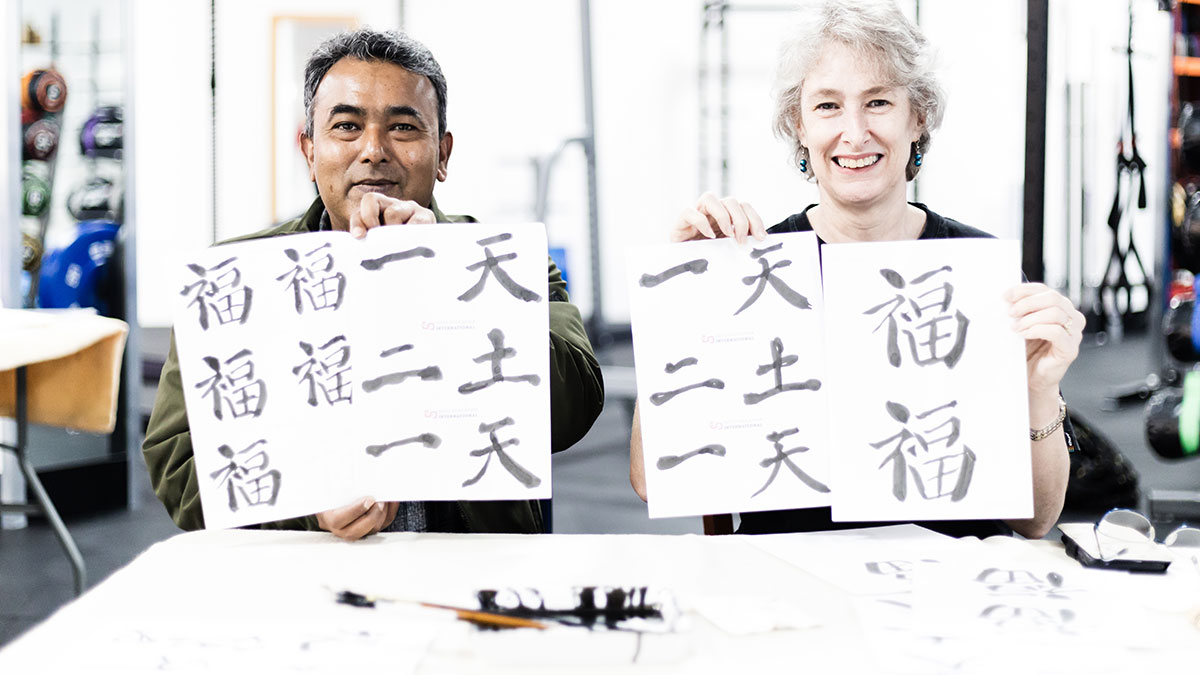 福 福 一 天
INTERNATIONAL
福 福 二 土
INTERNATIONAL
福 一 天
一 天
INTERNATIONAL
二 土
INTERNATIONAL
一 天
福
福